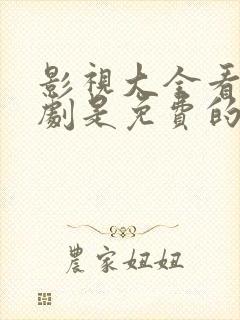 影視大全看
劇是免費的
農家妞妞